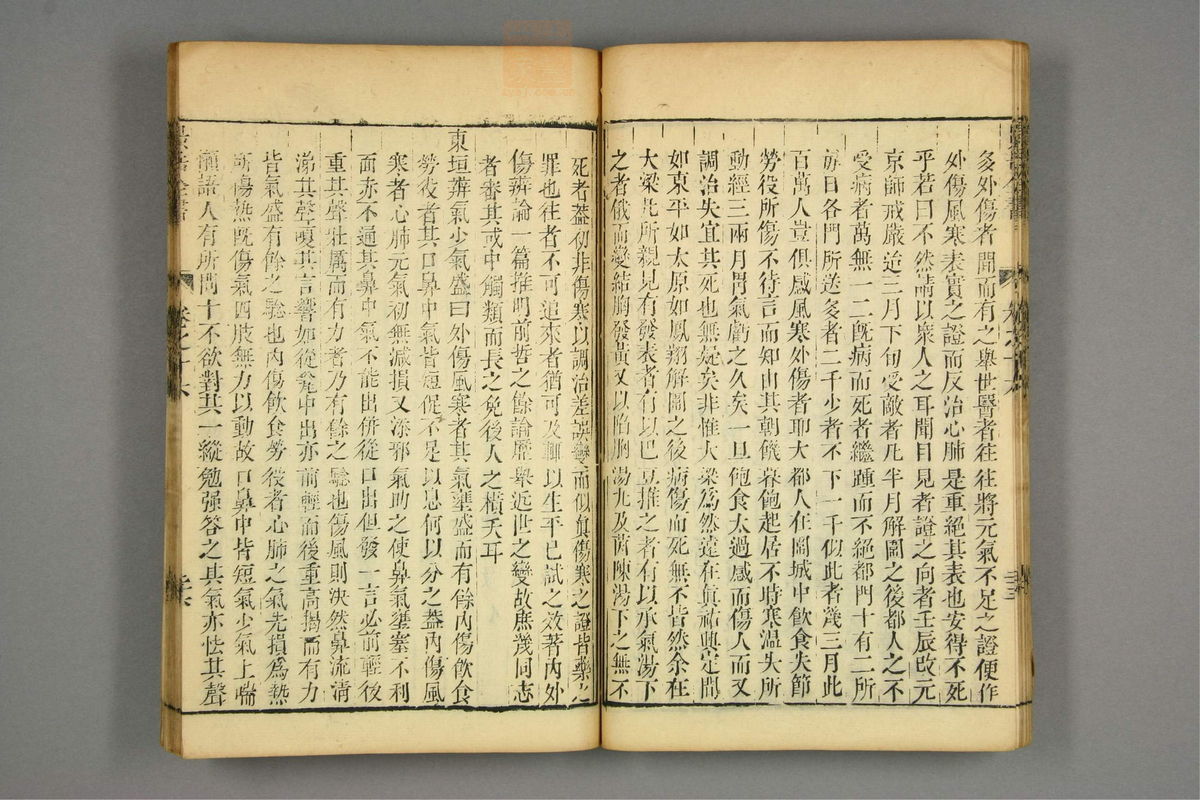 多外傷者間而有之舉世醫者往往將元氣不足之證便作
外傷風寒表實之證而反治心肺是重絕其表也安得不死
乎若曰不然請以衆人之耳聞目見者證之向者壬辰改元
京師戒嚴迨三月下旬受敵者凡半月解圍之後都人之不
受病者萬無一二旣病而死者繼踵而不絕都門十有二所
每日各門所送多者二千少者不下一千似此者幾三月此
百萬人豈俱感風寒外傷者耶大都人在圍城中飲食失節
勞役所傷不待言而知由其朝饑暮飽起居不時寒温失所
動經三兩月胃氣虧之久矣一旦飽食太過感而傷人而又
調治失宜其死也無疑矣非惟大梁爲然遠在貞祐興定間
如東平如太原如鳳翔解圍之後病傷而死無不皆然余在
大梁凡所親見有發表者有以巴豆推之者有以承氣湯下
之者俄而變結胸發黃又以陷胸湯丸及茵陳湯下之無不
死者蓋初非傷寒以調治差誤變而似眞傷寒之證皆藥之
罪也往者不可追來者猶可及輒以生平已試之效著內外
傷辨論一篇推明前哲之餘論歷舉近世之變故庶幾同志
者審其或中觸類而長之免後人之橫夭耳
東垣辨氣少氣盛曰外傷風寒者其氣壅盛而有餘內傷飲食
勞役者其口鼻中氣皆短促不足以息何以分之蓋內傷風
寒者心肺元氣初無減損又添邪氣助之使鼻氣壅塞不利
面赤不通其鼻中氣不能出併從口出但發一言必前輕後
重其聲壯厲而有力者乃有餘之驗也傷風則決然鼻流清
涕其聲嗄其言響如從瓮中出亦前輕而後重高揭而有力
皆氣盛有餘之驗也內傷飲食勞役者心肺之氣先損爲熱
所傷熱旣傷氣四肢無力以動故口鼻中皆短氣少氣上喘
懶語人有所問十不欲對其一縱勉强答之其氣亦怯其聲
景岳全書
卷之十六